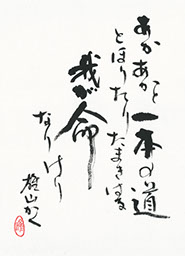 あかあかと一本の道
とほりたりたまきはる
我が命
なりけり
雄山かく